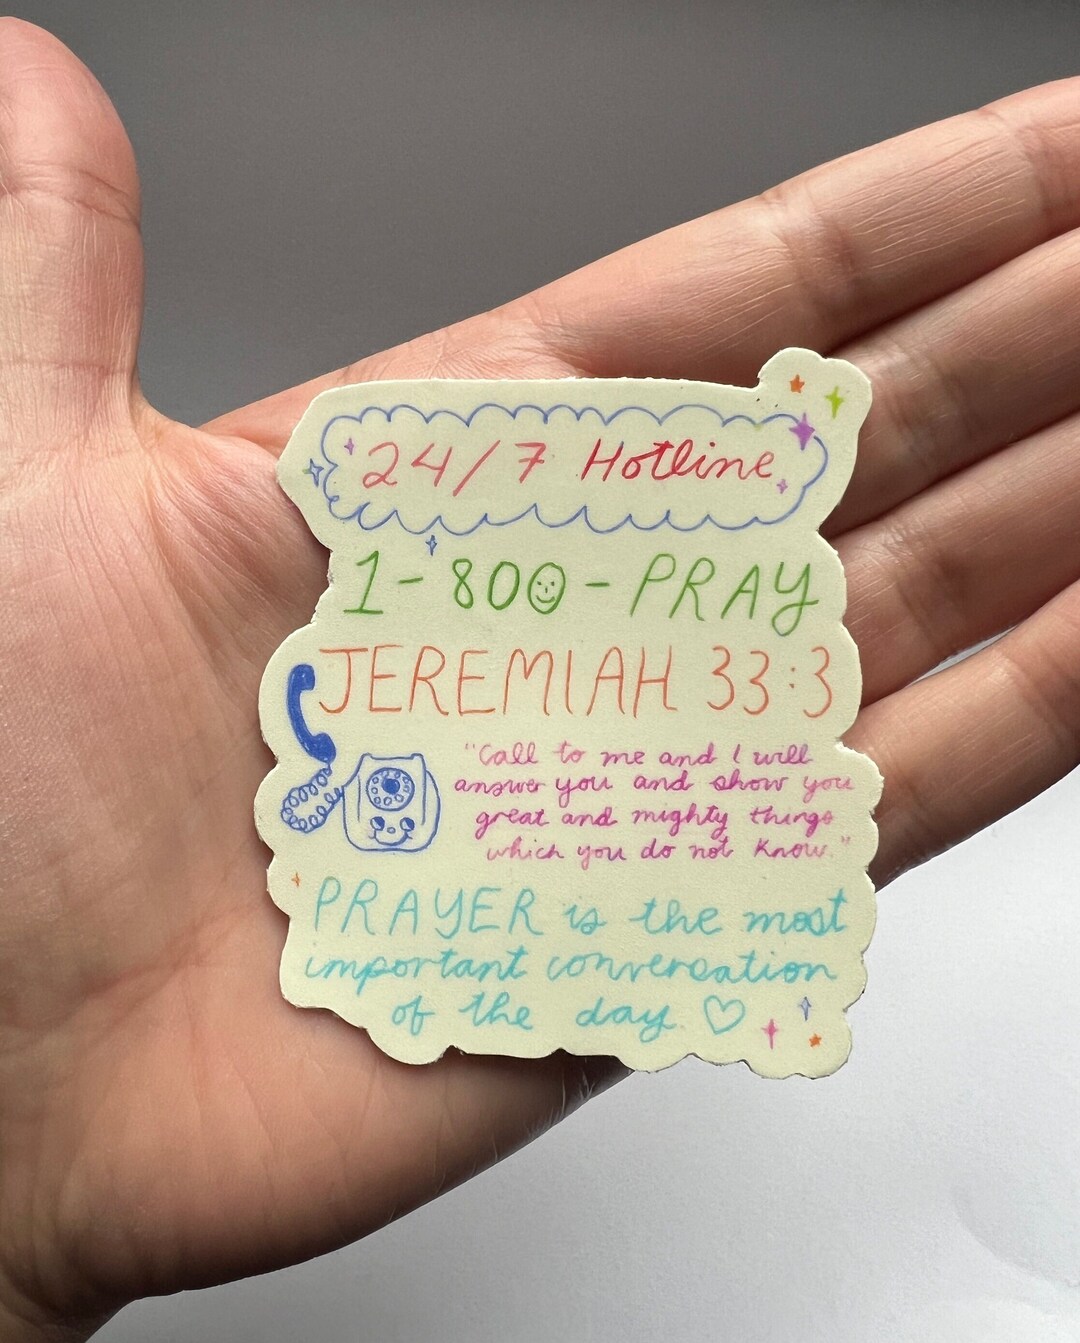 24/7 Hotline
1-800-PRAY
JEREMIAH 33:3
"Call to me and I will
answer you and show you
great and mighty things
which you do not know."
PRAYER is the most
important conversation
of the day